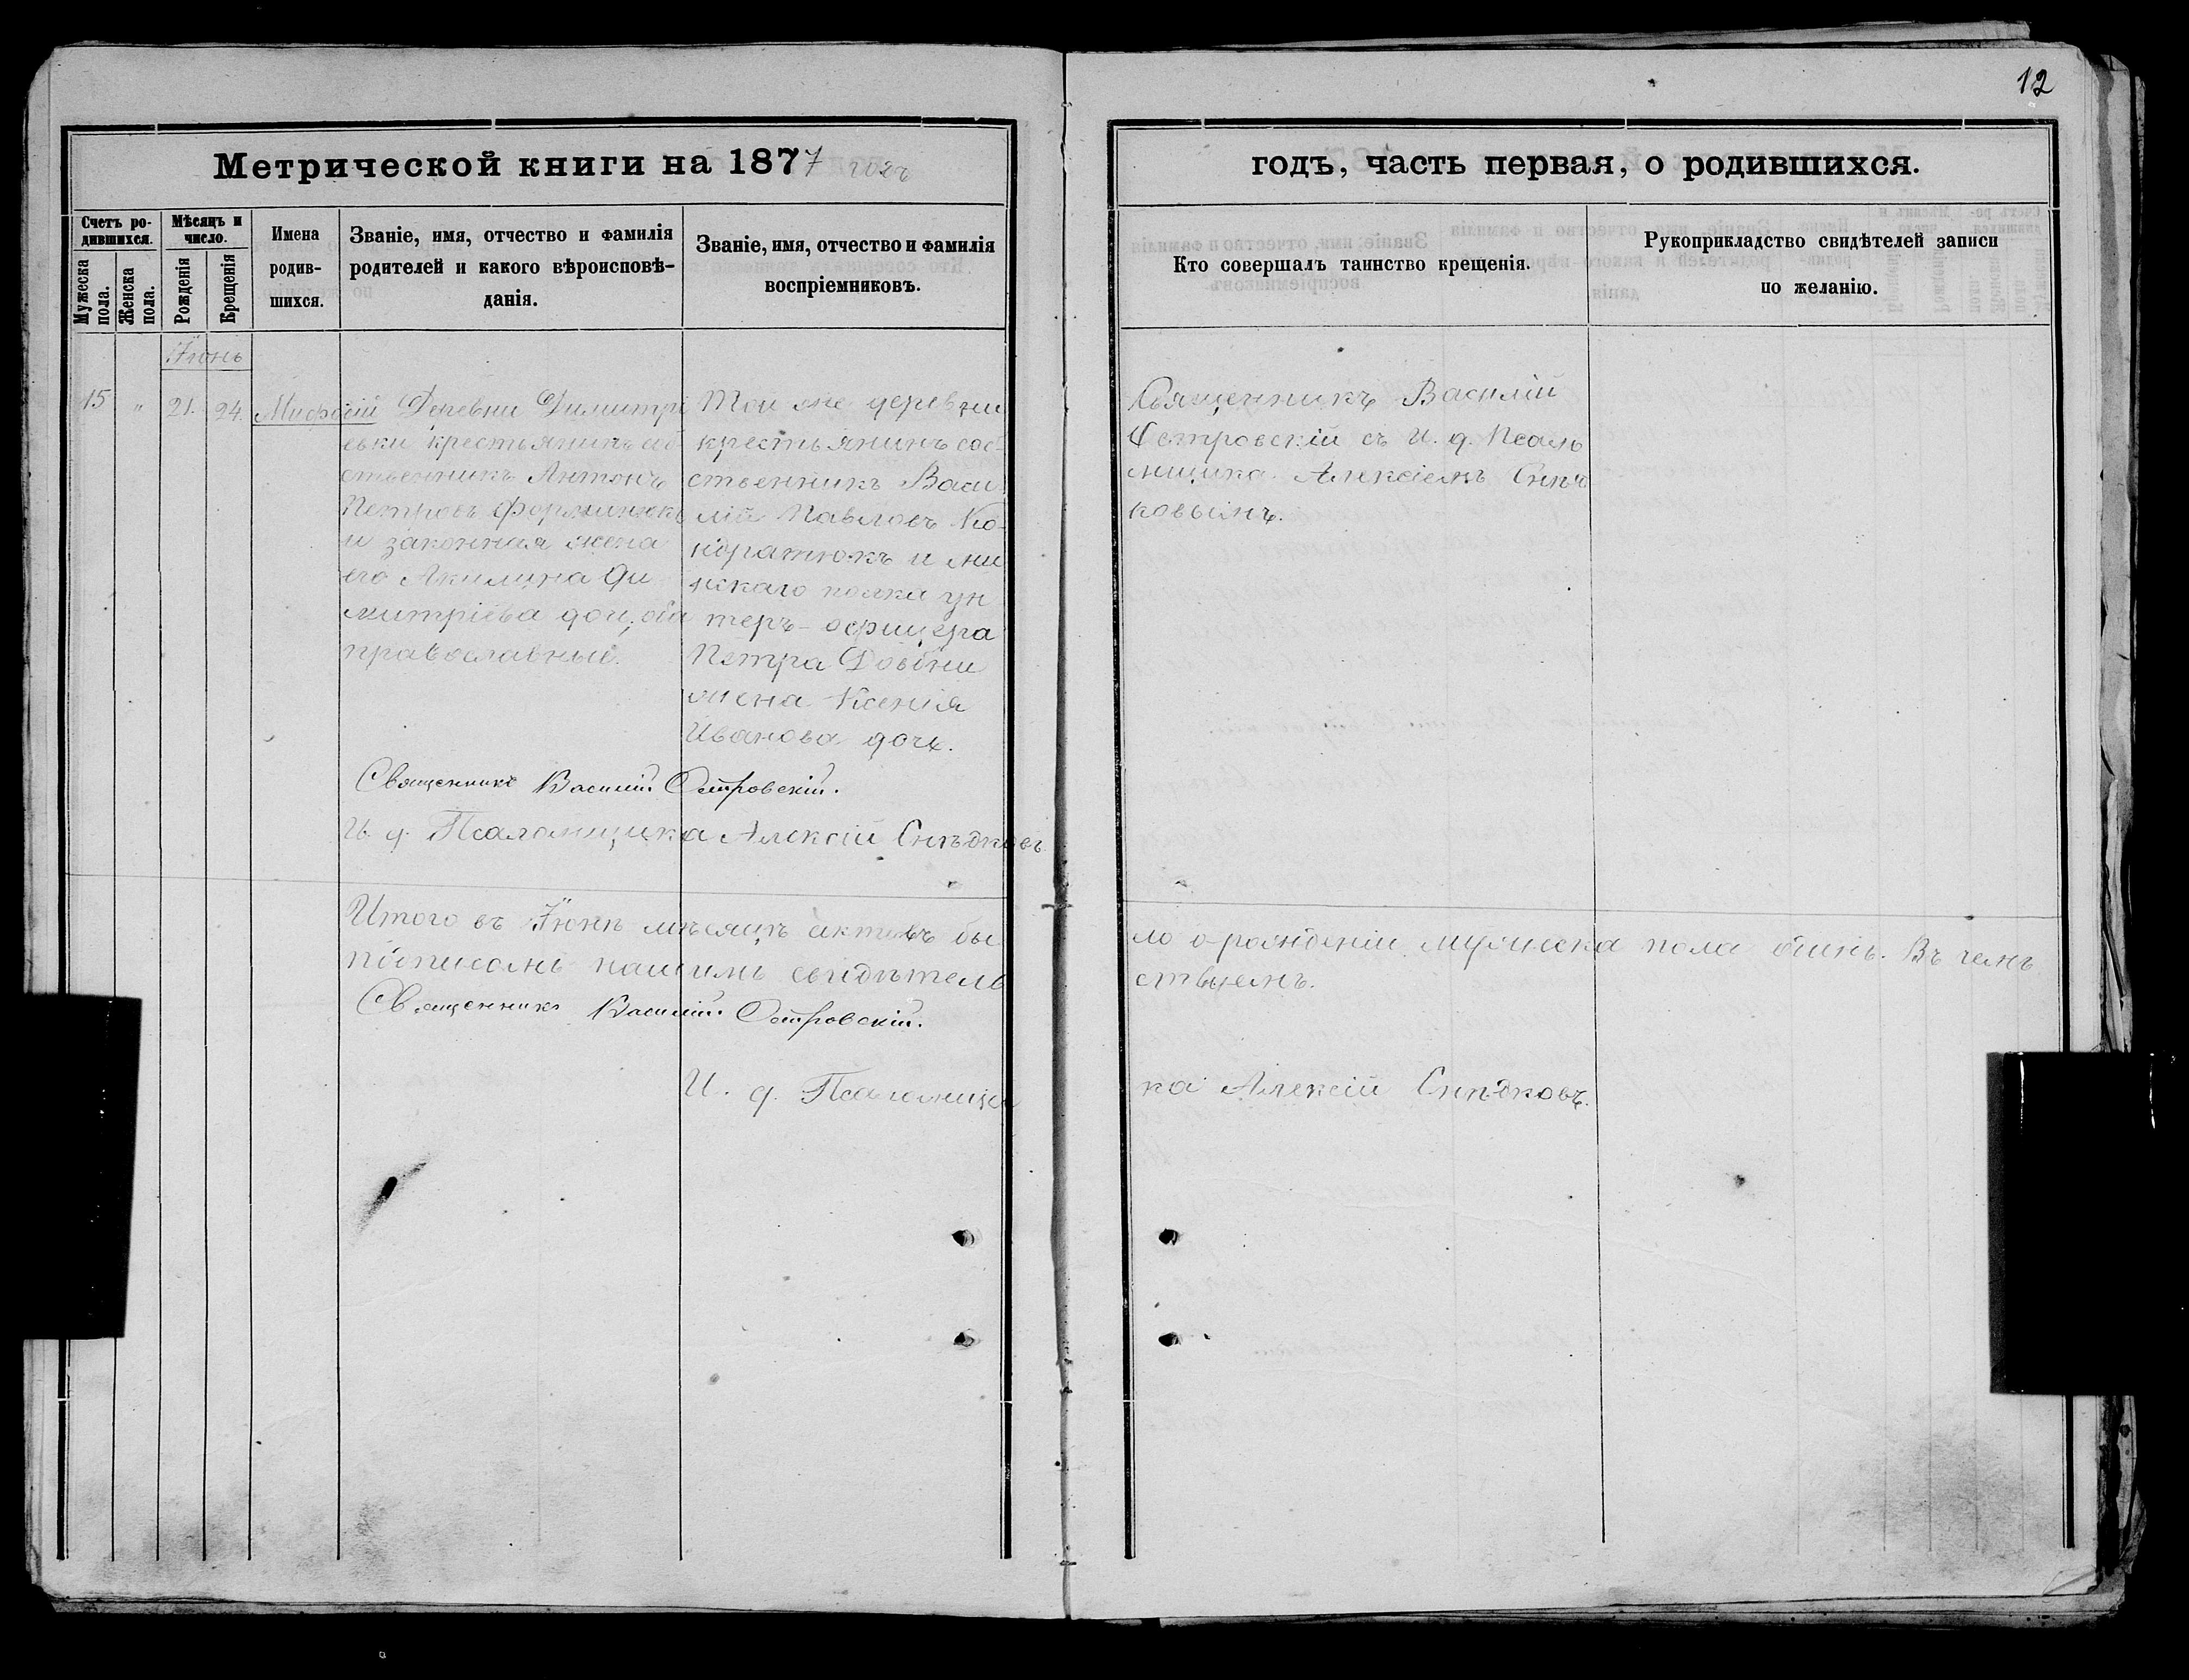 12
Метрической книги на 1877 годъ
годъ, часть первая, о родившихся.
Счетъ ро-
дившихся.
Мужеска
пола.
Женска
пола.
Мѣсяцъ и
число.
Рожденія
Крещенія
Имена
родив-
шихся.
Званіе, имя, отчество и фамилія
родителей и какого вѣроисповѣ-
данія.
Званіе, имя, отчество и фамилія
воспріемниковъ.
Кто совершалъ таинство крещенія.
Рукоприкладство свидѣтелей записи
по желанію.
Іюнь
15 " 21. 24.
Деревни Димитрі
евки крестьянинъ соб
ственникъ Антонъ
Петровъ
и законная жена
его Акилина Ди
митріева доч, оба
православные.
Той же деревни
крестьянинъ соб-
ственникъ Васи
лій Павловъ Ко-
ндратюкъ и ми
нскаго полка ун
теръ-офицера
Петра Довбни
жена Ксенія
Иванова дочь.
Священникъ Василій
Островскій съ И. д. Псалом
мщика Алексіемъ Снѣд
ковымъ.
Священникъ Василій Островскій.
И. д. Псаломщика Алексій Снѣдковъ
Итого въ Іюнѣ мѣсяцѣ актовъ бы
ло о рожденіи мужеска пола одинъ. Въ чемъ
подписомъ нашимъ свидѣтель
ствуемъ.
Священникъ Василій Островскій.
И. д. Псаломщи
ка Алексій Снѣдковъ.